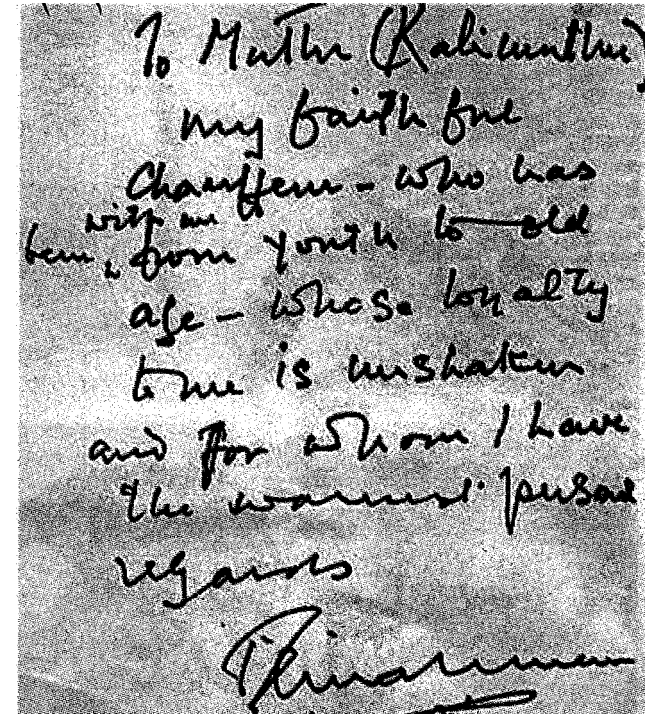 To Muthu (Kalimuthu)
my faithful
Chauffeur - who has
been with me from youth to old
age - whose loyalty
to me is unshaken
and for whom I have
the warmest personal
regards